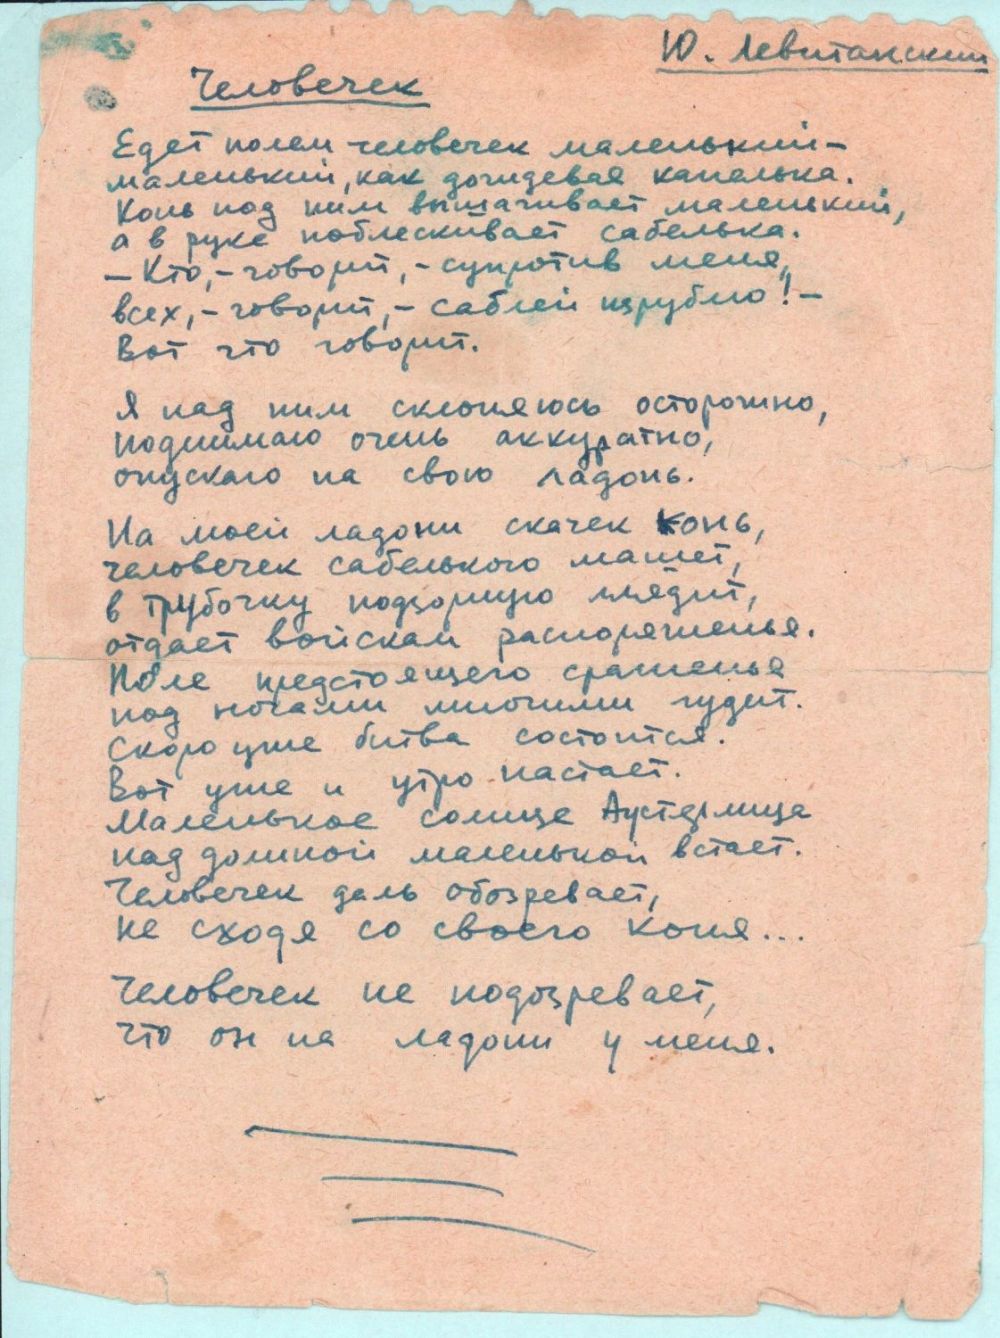 Ю. Левитанский
Человечек
Едет полем человечек маленький –
маленький, как дождевая капелька.
Конь под ним вышагивает маленький,
а в руке поблескивает сабелька.
– Кто, – говорит, – супротив меня,
всех, – говорит, – саблей изрублю! –
Вот что говорит.
Я над ним склоняюсь осторожно,
поднимаю очень аккуратно,
опускаю на свою ладонь.
На моей ладони скачек конь,
человечек сабелькою машет,
в трубочку подзорную глядит,
отдает войскам распоряженья.
Поле предстоящего сраженья
под ногами многими гудит.
Скоро уже битва состоится.
Вот уже и утро настает.
Маленькое солнце Аустерлица
над долиной маленькой встает.
Человечек даль обозревает,
не сходя со своего коня...
Человечек не подозревает,
что он на ладони у меня.